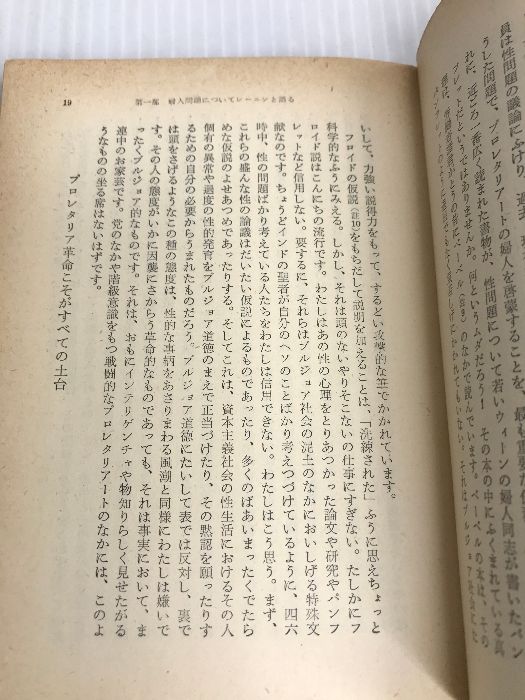 員は性問題の議論にふけり、
うした問題で、プロレタリアートの婦人を啓蒙することを、最も重要な
れに、近ごろ一番広く読まれた書物が、性問題について若いウィーンの婦人同志が書いたパン
フレットだというではありませんか。何というムダだろう！　その本の中にふくまれている真
ベーベル(註9)のなかで読んでいます。ベーベルの本は、その
19　第一部　婦人問題についてレーニンと語る
いして、力強い説得力をもって、するどい攻撃的な筆でかかれています。
フロイドの仮説(註10)をもちだして説明を加えることは、「洗練された」ふうに思えちょっと
科学的なふうにみえる。しかし、それは頭のないやりそこないの仕事にすぎない。たしかにフ
ロイド説はこんにちの流行です。わたしはあの性の心理をとりあつかった論文や研究やパンフ
レットなど信用しない。要するに、それらはブルジョア社会の泥土のなかにおいしげる特殊文
献なのです。ちょうどインドの聖者が自分のヘソのことばかり考えつづけているように、四六
時中、性の問題ばかり考えている人たちをわたしは信用できない。わたしはこう思う。まず、
これらの盛んな性の論議はだいたい仮説によるものであったり、多くのばあいまったくでたら
めな仮説のよせあつめであったりする。そしてこれは、資本主義社会の性生活におけるその人
個有の異常や過度の性的発育をブルジョア道徳のまえで正当づけたり、その黙認を願ったりす
るための自分の必要からうまれたものだろう。ブルジョア道徳にたいして表では反対し、裏で
は頭をさげるようなこの種の態度は、性的な事柄をあさりまわる風潮と同様にわたしは嫌いで
す。その人の態度がいかに因襲にさからう革命的なものであっても、それは事実において、ま
ったくブルジョア的なものです。それは、おもにインテリゲンチャや物知りらしく見せたがる
連中のお家芸です。党のなかや階級意識をもつ戦闘的なプロレタリアートのなかには、このよ
うなものの坐る席はないはずです。
プロレタリア革命こそがすべての土台